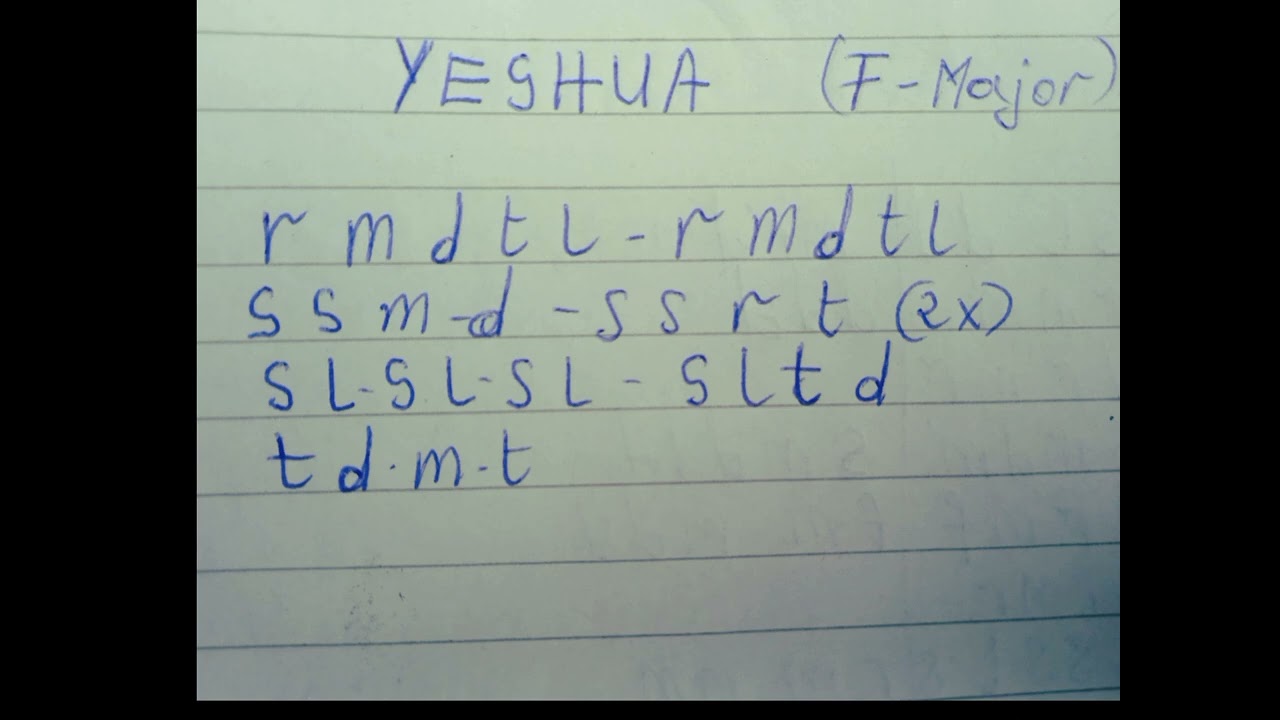 YESHUA (F-Major)
r m d t l - r m d t l
s s m - d - s s r t (2x)
s l - s l - s l - s l t d
t d . m . t